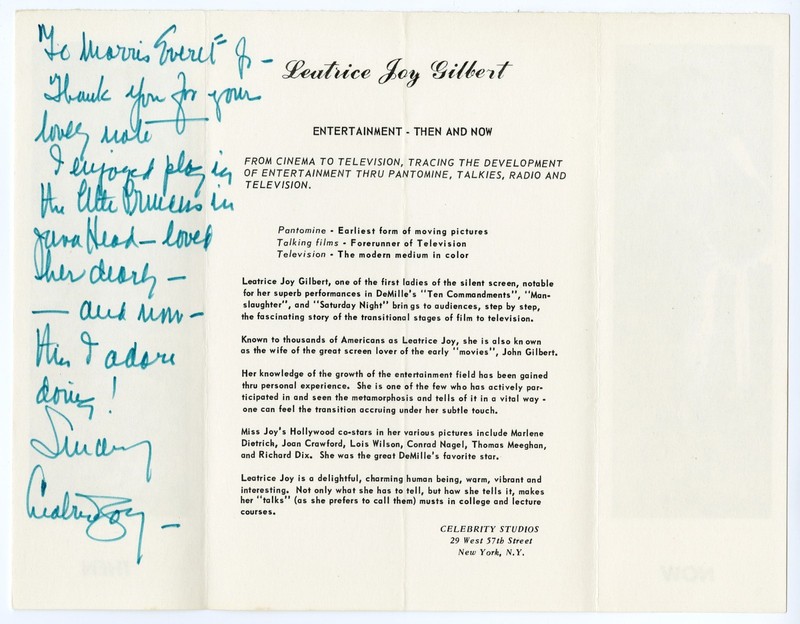 "To Morris Everett Jr —
Thank you for your
lovely note
I enjoyed playing
the little Princess in
Java Head — loved
her dearly —
— and now —
this I adore
doing!
Sincerely
Leatrice Joy —
Leatrice Joy Gilbert
ENTERTAINMENT - THEN AND NOW
FROM CINEMA TO TELEVISION, TRACING THE DEVELOPMENT
OF ENTERTAINMENT THRU PANTOMINE, TALKIES, RADIO AND
TELEVISION.
Pantomine - Earliest form of moving pictures
Talking films - Forerunner of Television
Television - The modern medium in color
Leatrice Joy Gilbert, one of the first ladies of the silent screen, notable
for her superb performances in DeMille's "Ten Commandments", "Man-
slaughter", and "Saturday Night" brings to audiences, step by step,
the fascinating story of the transitional stages of film to television.
Known to thousands of Americans as Leatrice Joy, she is also kn own
as the wife of the great screen lover of the early "movies", John Gilbert.
Her knowledge of the growth of the entertainment field has been gained
thru personal experience. She is one of the few who has actively par-
ticipated in and seen the metamorphosis and tells of it in a vital way -
one can feel the transition accruing under her subtle touch.
Miss Joy's Hollywood co-stars in her various pictures include Marlene
Dietrich, Joan Crawford, Lois Wilson, Conrad Nagel, Thomas Meeghan,
and Richard Dix. She was the great DeMille's favorite star.
Leatrice Joy is a delightful, charming human being, warm, vibrant and
interesting. Not only what she has to tell, but how she tells it, makes
her "talks" (as she prefers to call them) musts in college and lecture
courses.
CELEBRITY STUDIOS
29 West 57th Street
New York, N.Y.
THEN
NOW